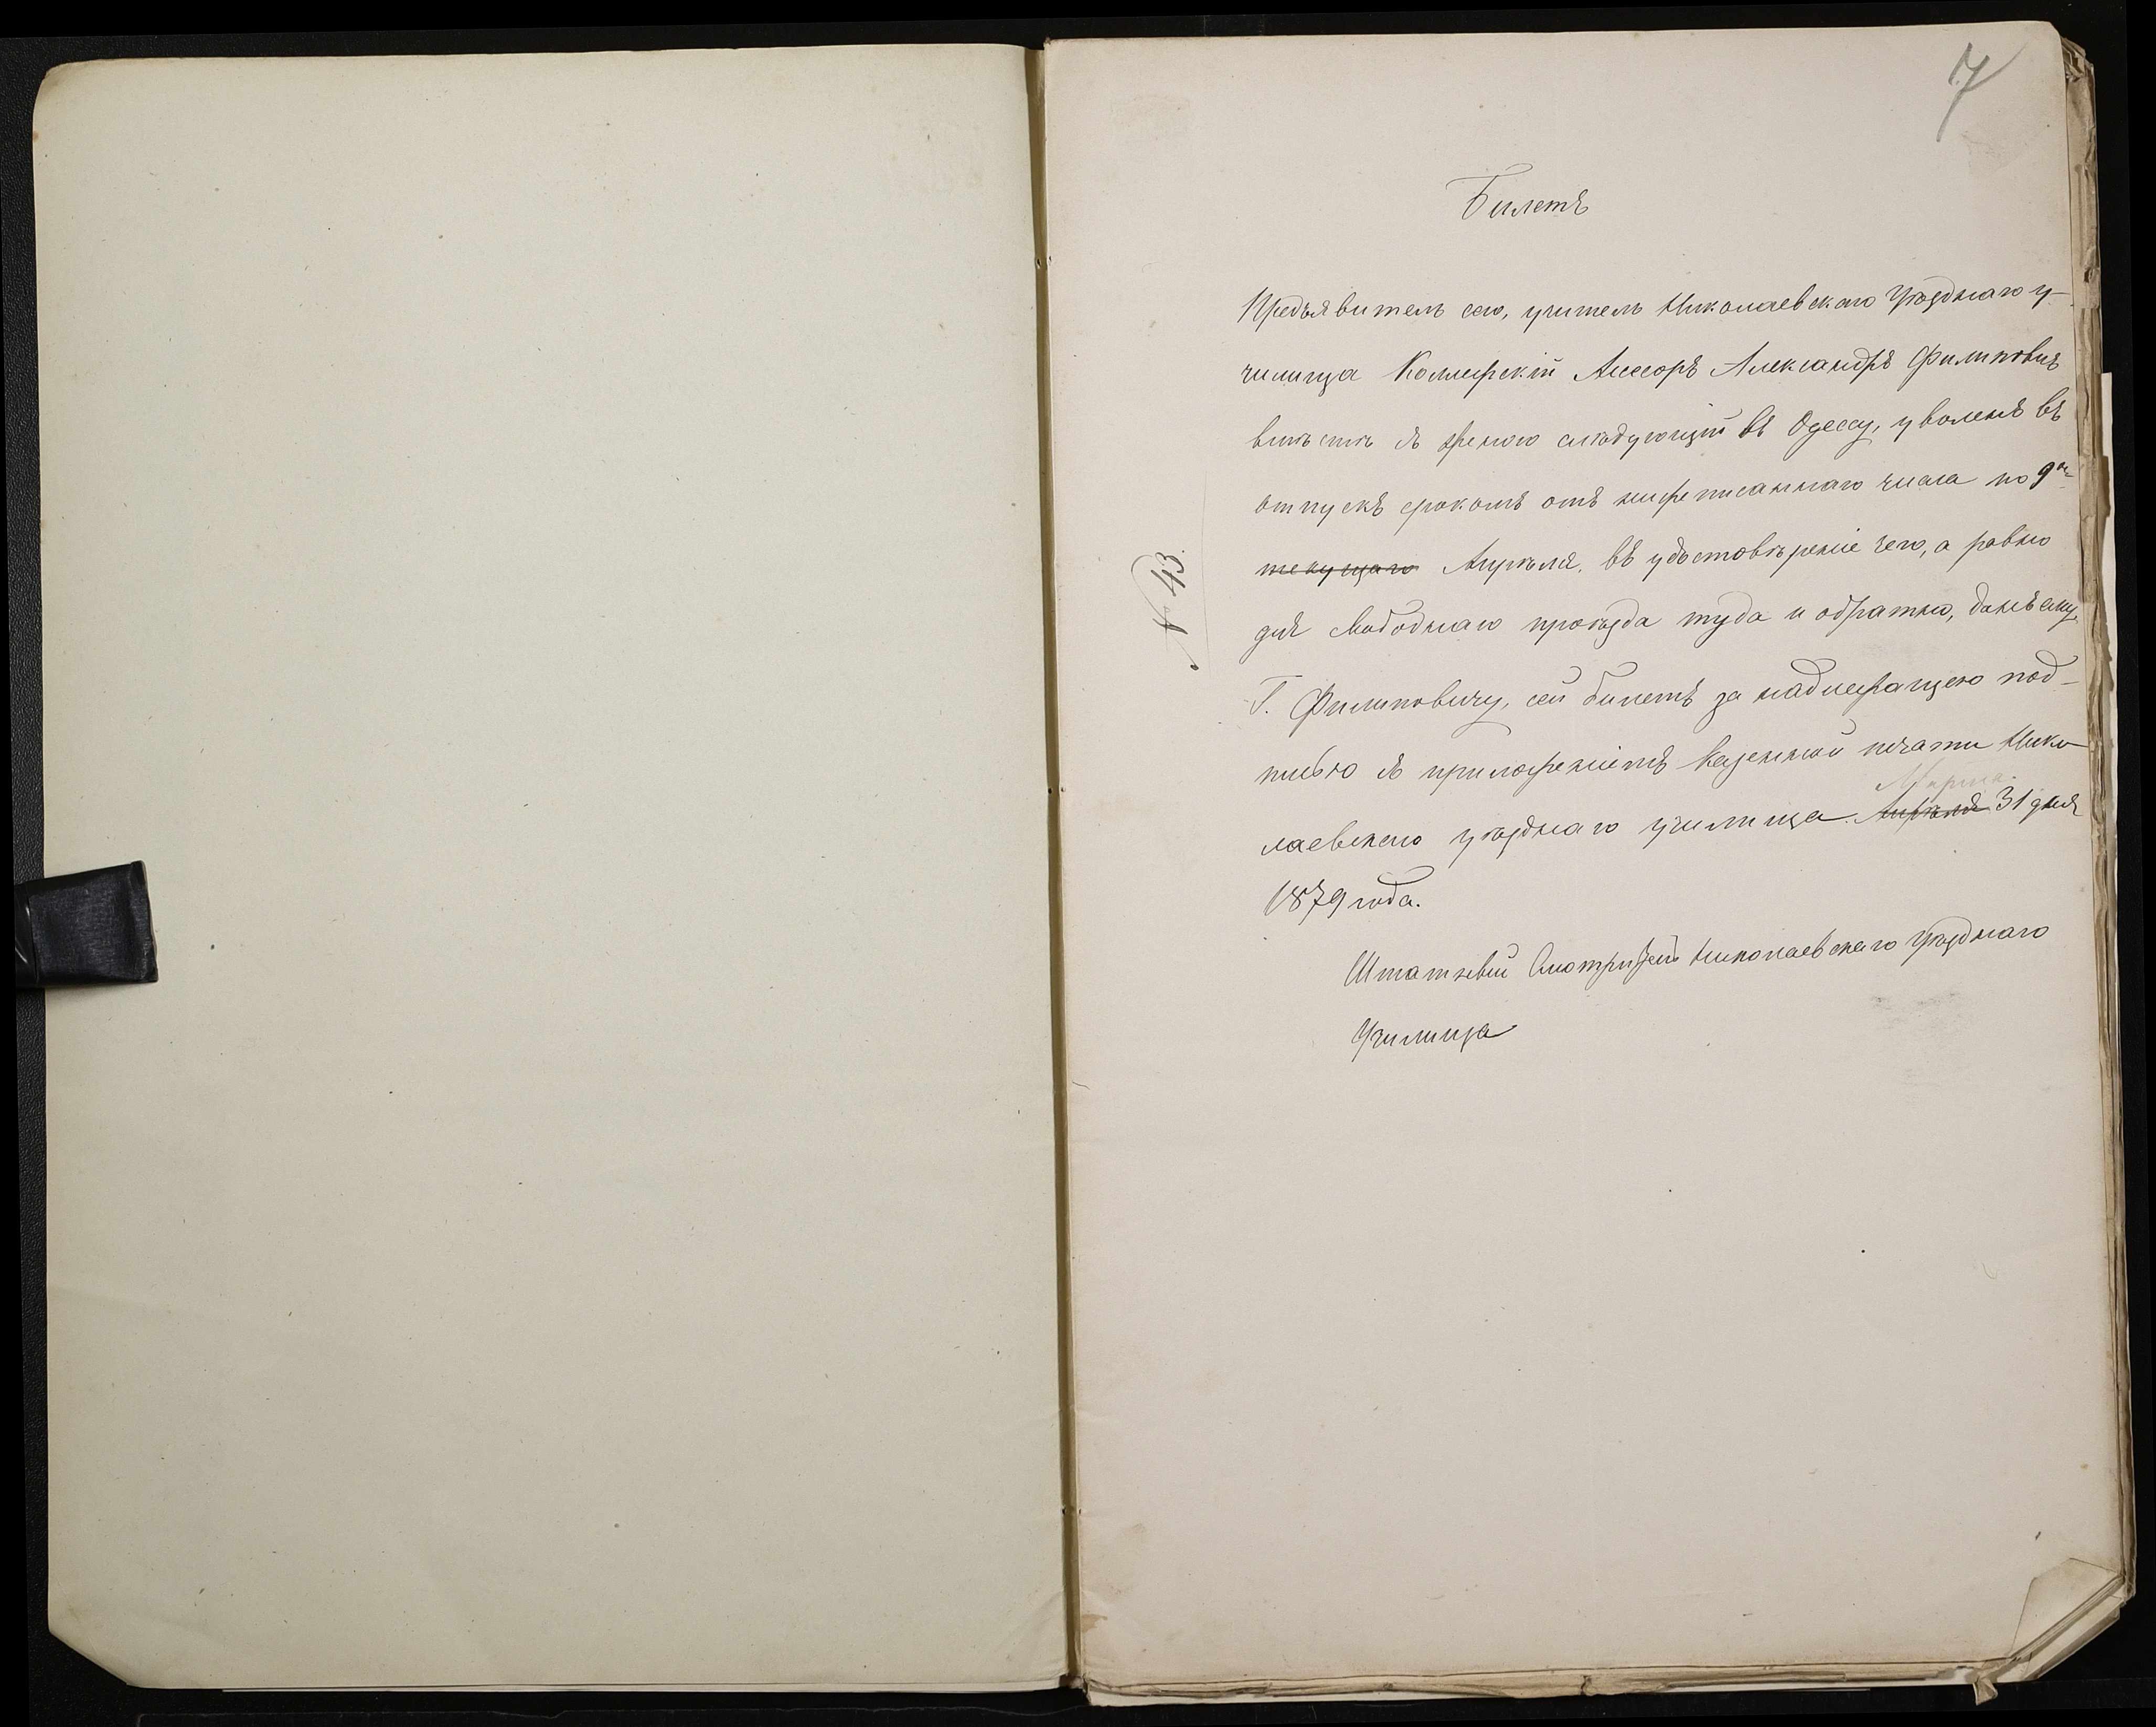 7
Билетъ
Предъявитель сего, учитель Николаевскаго Уѣзднаго у-
чилища Коллежскій Ассесоръ Александръ Филиповичъ
вмѣстѣ съ женою слѣдующій въ Одессу, уволенъ въ
отпускъ срокомъ отъ нижеписаннаго числа по 9е
текущаго Апрѣля. въ удостовѣреніе чего, а равно
для свободнаго проѣзда туда и обратно, данъ ему,
Г. Филиповичу, сей билетъ за надлежащею под-
писью съ приложеніемъ казенной печати Нико-
лаевскаго уѣзднаго училища. Апрѣля Марта 31 дня
1879 года.
Штатный Смотритель Николаевскаго Уѣзднаго
Училища
№ 43.